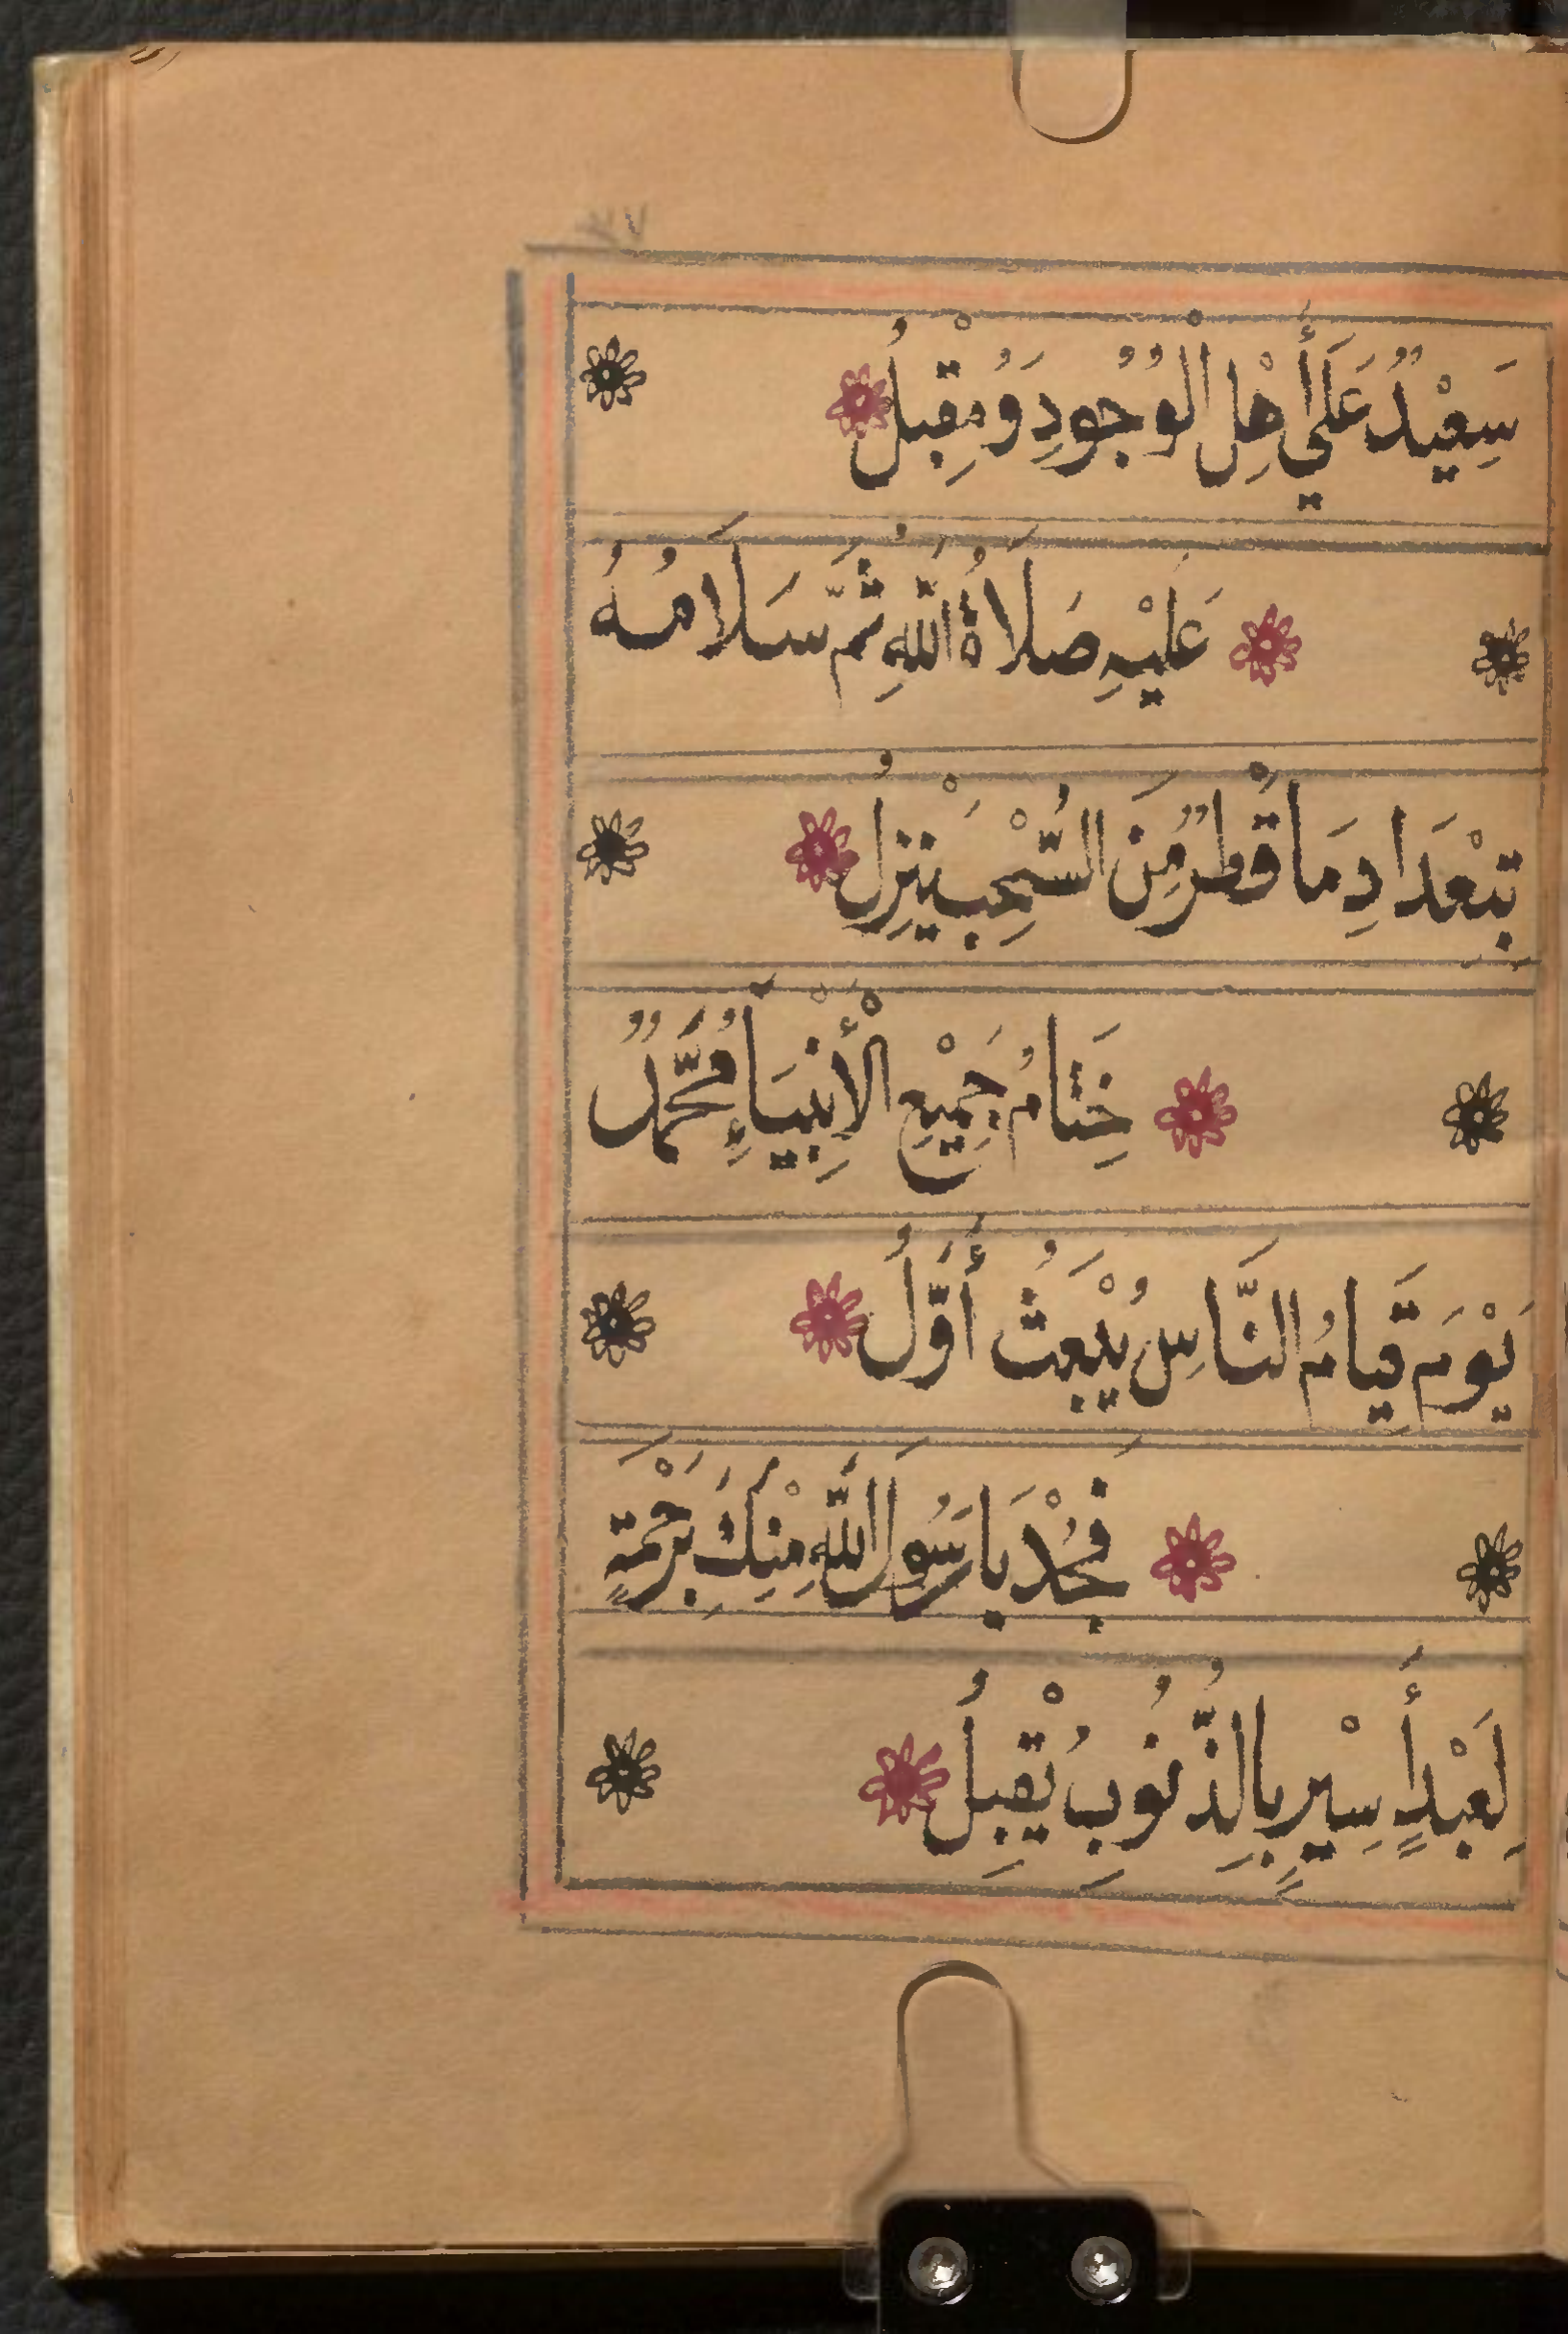 سَعِيْدٌ عَلَى أَهْلِ الْوُجُودِ وَمُقْبِلُ
عَلَيْهِ صَلَاةُ اللَّهِ ثُمَّ سَلَامُهُ
بِتَعْدَادِ مَا قَطْرٌ مِّنَ السُّحْبِ يَنْزِلُ
خِتَامُ جَمِيْعِ الْأَنْبِيَاءِ مُحَمَّدٌ
يَوْمَ قِيَامُ النَّاسِ يُبْعَثُ أَوَّلُ
فَجُدْ يَا رَسُولَ اللَّهِ مِنْكَ بِرَحْمَةٍ
لِعَبْدٍ أَسِيْرٍ بِالذُّنُوبِ يُقْبِلُ